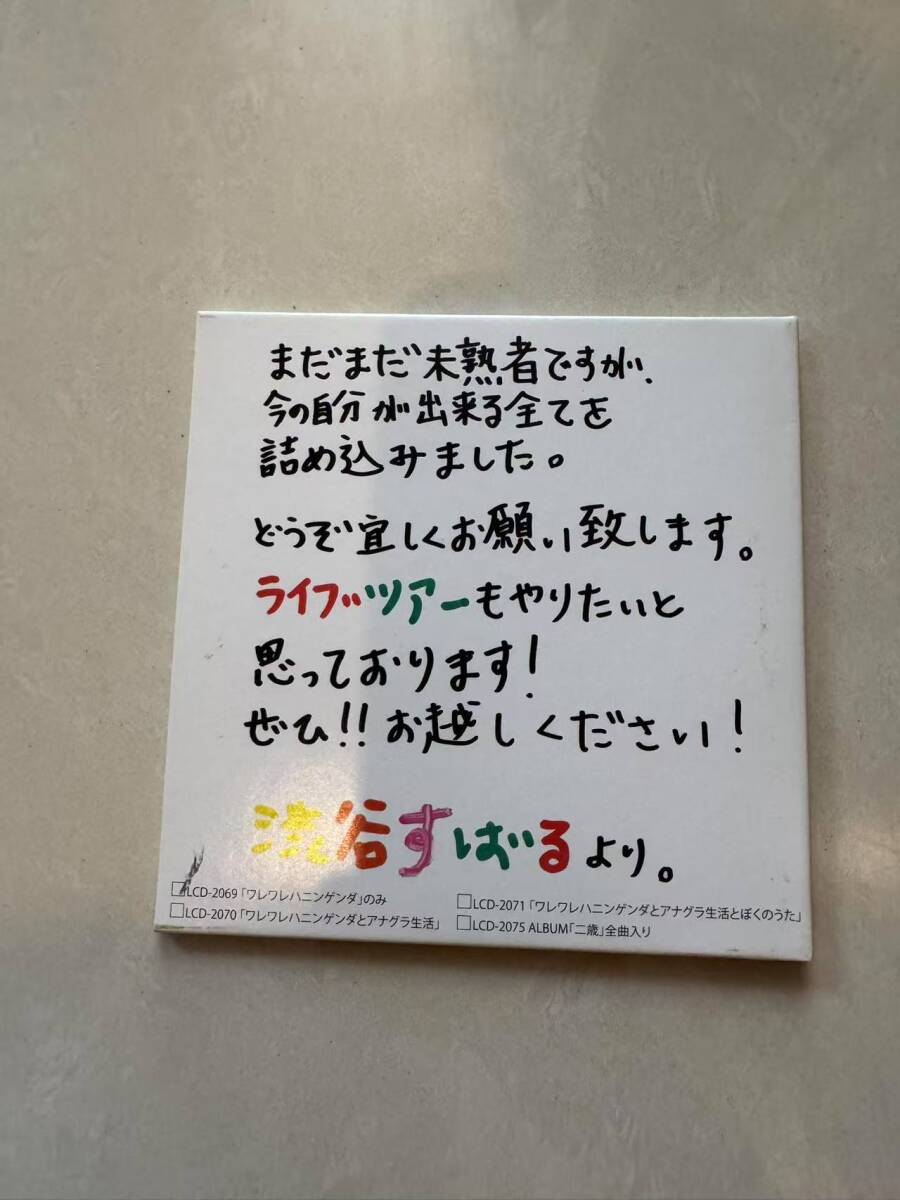 まだまだ未熟者ですが、
今の自分が出来る全てを
詰め込みました。
どうぞ宜しくお願い致します。
ライブツアーもやりたいと
思っております！
ぜひ!!お越しください！
渋谷すばるより。
□LCD-2069「ワレワレハニンゲンダ」のみ
□LCD-2070「ワレワレハニンゲンダとアナグラ生活」
□LCD-2071「ワレワレハニンゲンダとアナグラ生活とぼくのうた」
□LCD-2075 ALBUM「二歳」全曲入り